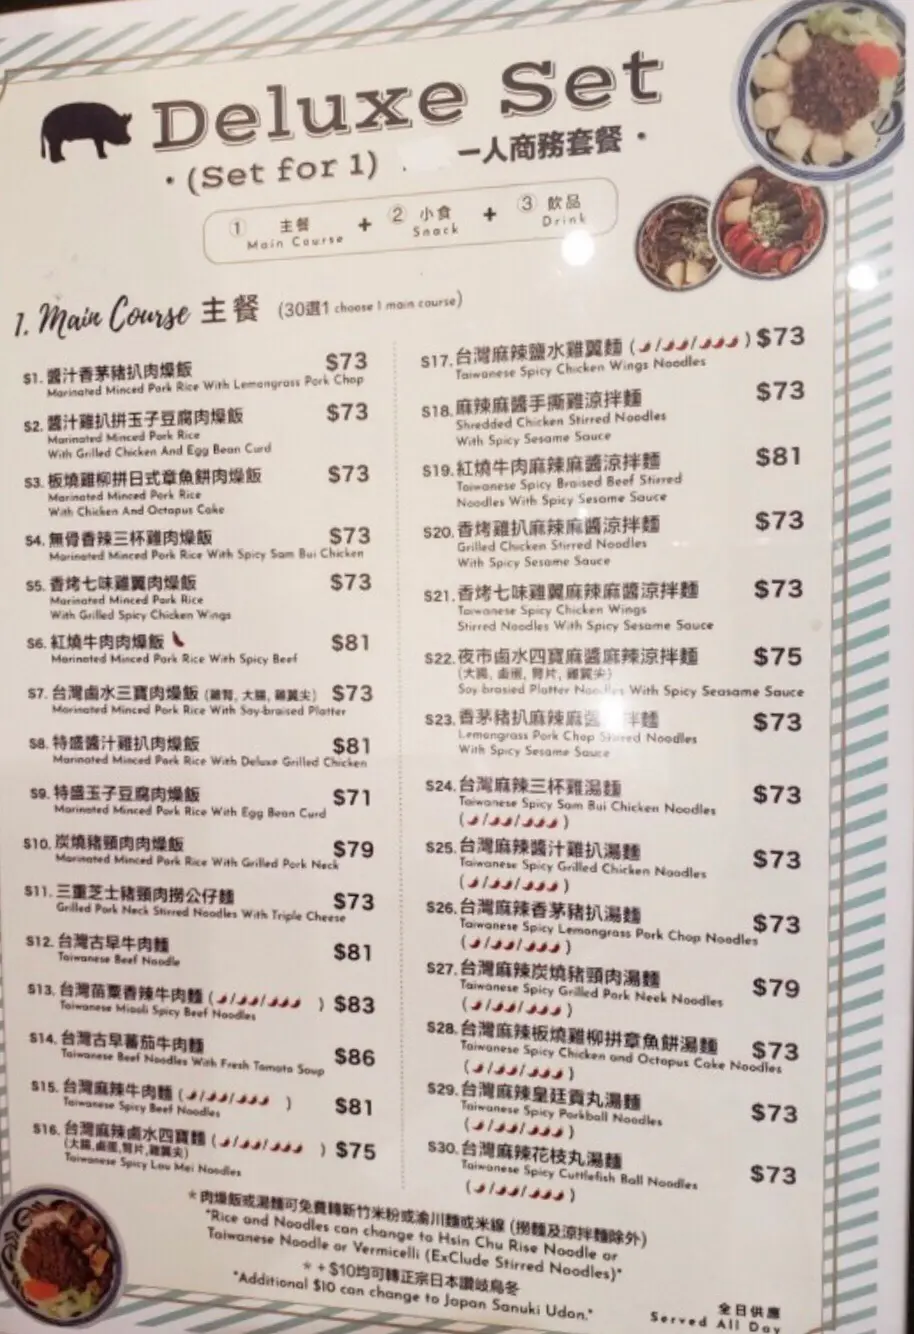 Deluxe Set
• (Set for 1) 一人商務套餐 •
① 主餐 + ② 小食 + ③ 飲品
Main Course Snack Drink
1. Main Course 主餐 (30選1 choose 1 main course)
S1. 醬汁香茅豬扒肉燥飯 $73
Marinated Minced Pork Rice With Lemongrass Pork Chop
S2. 醬汁雞扒拼玉子豆腐肉燥飯 $73
Marinated Minced Pork Rice
With Grilled Chicken And Egg Bean Curd
S3. 板燒雞柳拼日式章魚餅肉燥飯 $73
Marinated Minced Pork Rice
With Chicken And Octopus Cake
S4. 無骨香辣三杯雞肉燥飯 $73
Marinated Minced Pork Rice With Spicy Sam Bui Chicken
S5. 香烤七味雞翼肉燥飯 $73
Marinated Minced Pork Rice
With Grilled Spicy Chicken Wings
S6. 紅燒牛肉肉燥飯 $81
Marinated Minced Pork Rice With Spicy Beef
S7. 台灣鹵水三寶肉燥飯 (雞腎, 大腸, 雞翼尖) $73
Marinated Minced Pork Rice With Soy-braised Platter
S8. 特盛醬汁雞扒肉燥飯 $81
Marinated Minced Pork Rice With Deluxe Grilled Chicken
S9. 特盛玉子豆腐肉燥飯 $71
Marinated Minced Pork Rice With Egg Bean Curd
S10. 炭燒豬頸肉肉燥飯 $79
Marinated Minced Pork Rice With Grilled Pork Neck
S11. 三重芝士豬頸肉撈公仔麵 $73
Grilled Pork Neck Stirred Noodles With Triple Cheese
S12. 台灣古早牛肉麵 $81
Taiwanese Beef Noodle
S13. 台灣苗栗香辣牛肉麵 ( / / ) $83
Taiwanese Miaoli Spicy Beef Noodles
S14. 台灣古早蕃茄牛肉麵 $86
Taiwanese Beef Noodles With Fresh Tomato Soup
S15. 台灣麻辣牛肉麵 ( / / ) $81
Taiwanese Spicy Beef Noodles
S16. 台灣麻辣鹵水四寶麵 ( / / ) $75
(大腸,鹵蛋,腎片,雞翼尖)
Taiwanese Spicy Lou Mei Noodles
S17. 台灣麻辣鹽水雞翼麵 ( / / ) $73
Taiwanese Spicy Chicken Wings Noodles
S18. 麻辣麻醬手撕雞涼拌麵 $73
Shredded Chicken Stirred Noodles
With Spicy Sesame Sauce
S19. 紅燒牛肉麻辣麻醬涼拌麵 $81
Taiwanese Spicy Braised Beef Stirred
Noodles With Spicy Sesame Sauce
S20. 香烤雞扒麻辣麻醬涼拌麵 $73
Grilled Chicken Stirred Noodles
With Spicy Sesame Sauce
S21. 香烤七味雞翼麻辣麻醬涼拌麵 $73
Taiwanese Spicy Chicken Wings
Stirred Noodles With Spicy Sesame Sauce
S22. 夜市鹵水四寶麻醬麻辣涼拌麵 $75
(大腸, 鹵蛋, 腎片, 雞翼尖)
Soy brasied Platter Noodles With Spicy Seasame Sauce
S23. 香茅豬扒麻辣麻醬 拌麵 $73
Lemongrass Pork Chop Stirred Noodles
With Spicy Sesame Sauce
S24. 台灣麻辣三杯雞湯麵 $73
Taiwanese Spicy Sam Bui Chicken Noodles
( / / )
S25. 台灣麻辣醬汁雞扒湯麵 $73
Taiwanese Spicy Grilled Chicken Noodles
( / / )
S26. 台灣麻辣香茅豬扒湯麵 $73
Taiwanese Spicy Lemongrass Pork Chop Noodles
( / / )
S27. 台灣麻辣炭燒豬頸肉湯麵 $79
Taiwanese Spicy Grilled Pork Neek Noodles
( / / )
S28. 台灣麻辣板燒雞柳拼章魚餅湯麵 $73
Taiwanese Spicy Chicken and Octopus Cake Noodles
( / / )
S29. 台灣麻辣皇廷貢丸湯麵 $73
Taiwanese Spicy Porkball Noodles
( / / )
S30. 台灣麻辣花枝丸湯麵 $73
Taiwanese Spicy Cuttlefish Ball Noodles
( / / )
*肉燥飯或湯麵可免費轉新竹米粉或渝川麵或米線 (撈麵及涼拌麵除外)
*Rice and Noodles can change to Hsin Chu Rise Noodle or
Taiwanese Noodle or Vermicelli (ExClude Stirred Noodles)*
* + $10均可轉正宗日本讚岐烏冬
*Additional $10 can change to Japan Sanuki Udon.*
全日供應
Served All Day